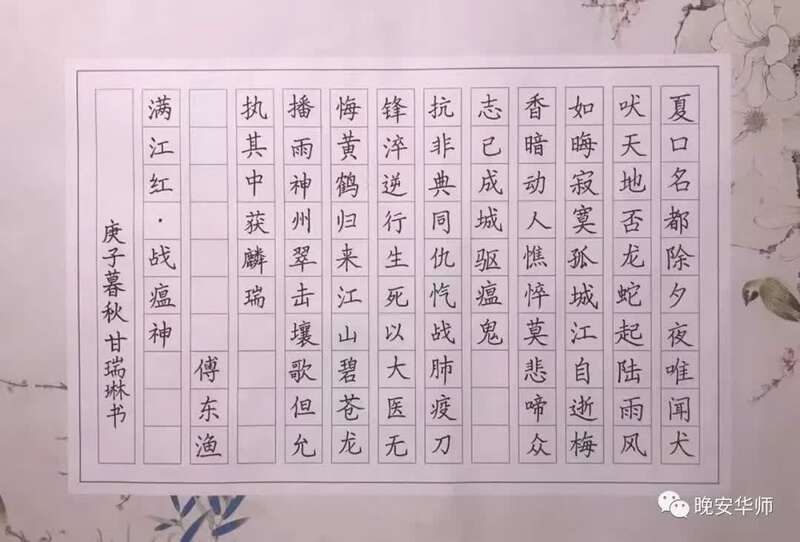 夏口名都除夕夜唯闻犬
吠天地否龙蛇起陆雨风
如晦寂寞孤城江自逝梅
香暗动人憔悴莫悲啼众
志已成城驱瘟鬼
抗非典同仇忾战肺疫刀
锋淬逆行生死以大医无
悔黄鹤归来江山碧苍龙
播雨神州翠击壤歌但允
执其中获麟瑞
傅东渔
满江红·战瘟神
庚子暮秋甘瑞琳书
晚安华师